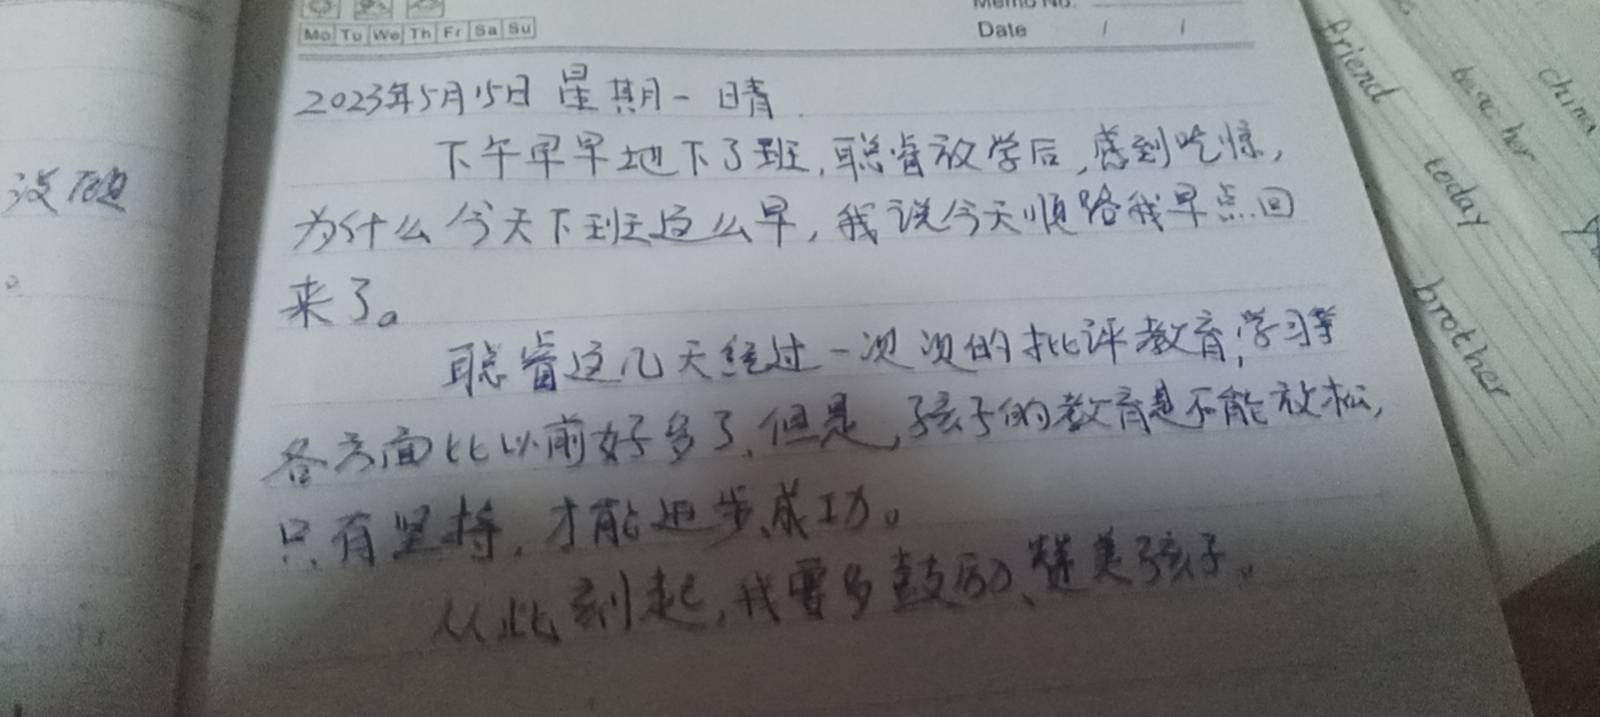 Mo Tu We Th Fr Sa Su
Memo No.
Date / /
2023年5月15日 星期一 晴
下午早早地下了班,聪睿放学后,感到吃惊,
为什么今天下班这么早,我说今天顺路我早点回
来了。
聪睿这几天经过一次次的批评教育,学习等
各方面比以前好多了,但是,孩子的教育是不能放松,
只有坚持,才能进步、成功。
从此刻起,我要多鼓励、赞美孩子。
没
friend
teacher
china
today
brother